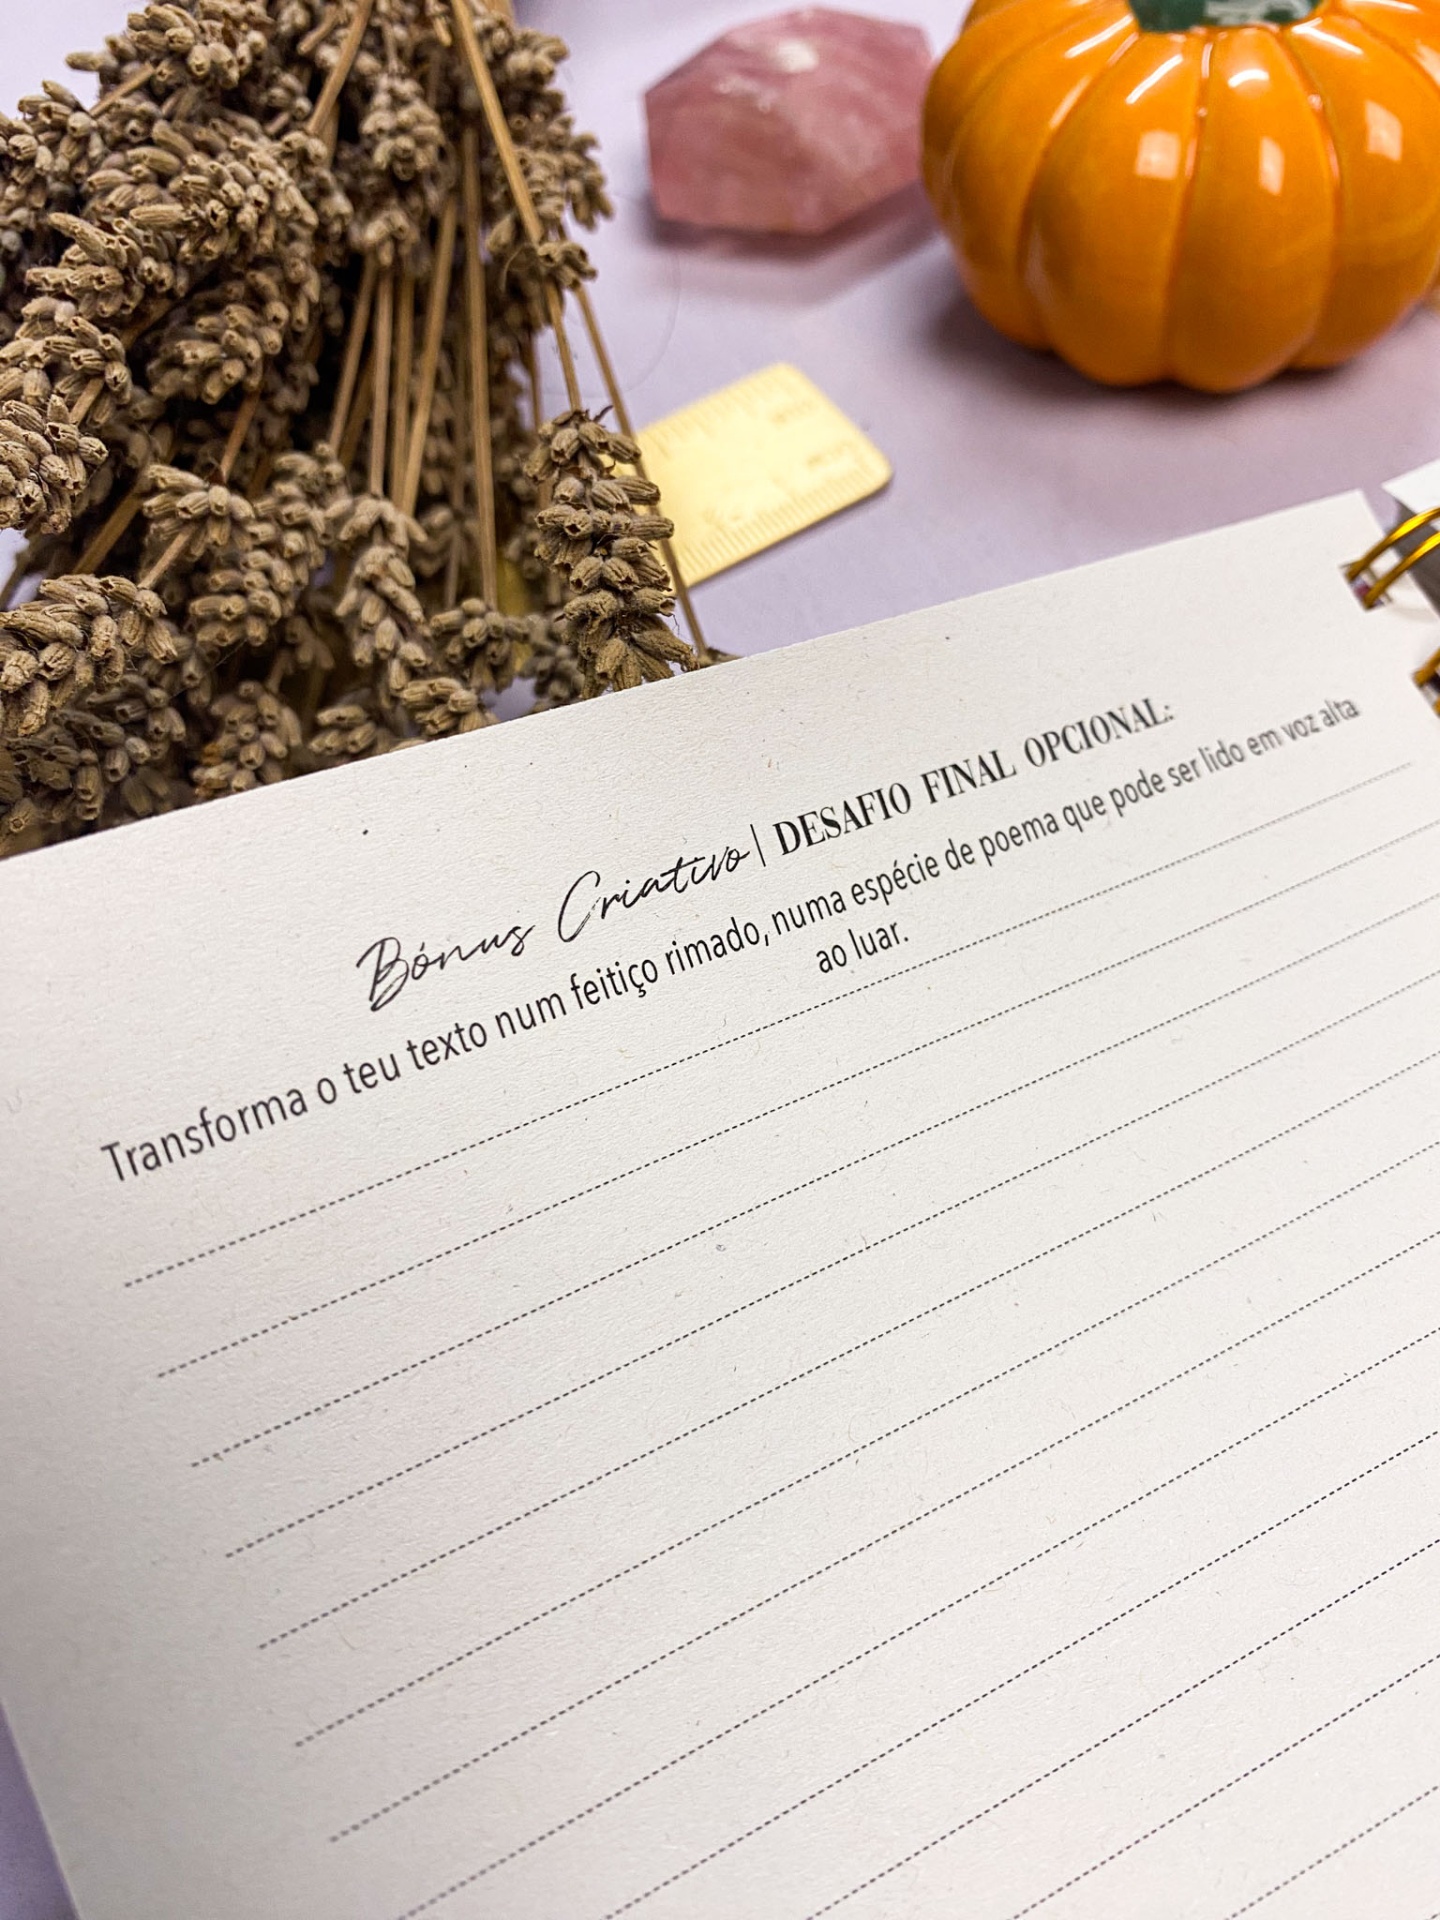 Bónus Criativo | DESAFIO FINAL OPCIONAL:
Transforma o teu texto num feitiço rimado, numa espécie de poema que pode ser lido em voz alta
ao luar.